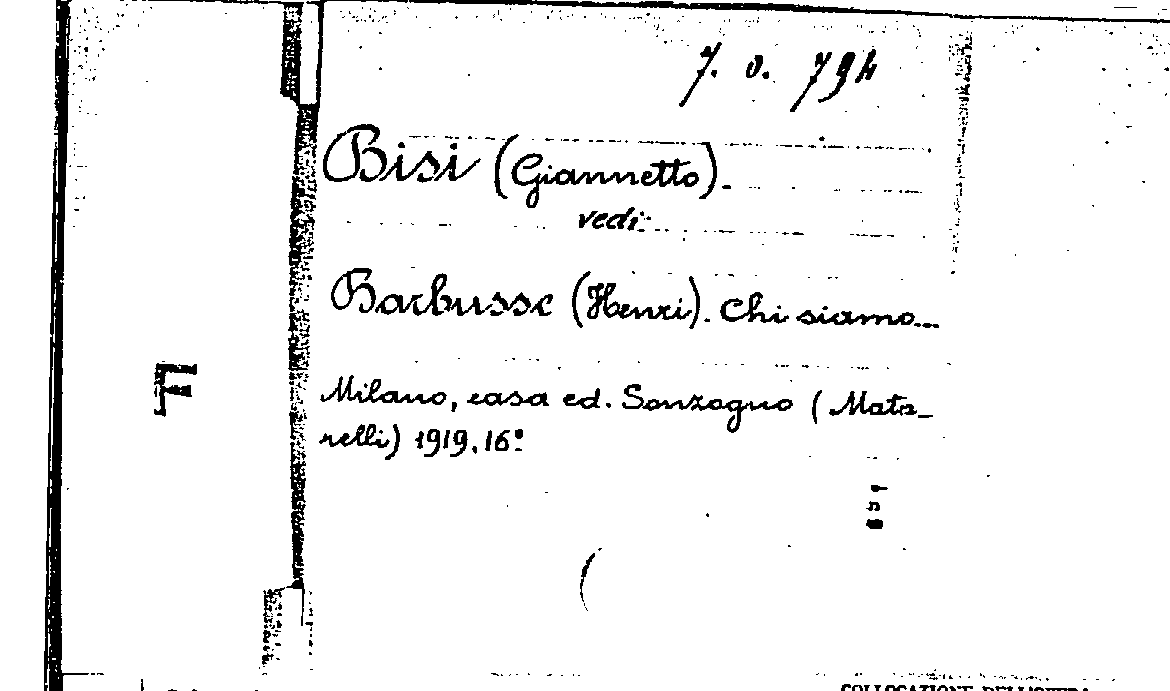 7. o. 794
Bisi (Giannetto).
vedi:
Barbusse (Henri). Chi siamo...
F
Milano, casa ed. Sonzogno (Mata-
relli) 1919. 16º
COLLOCAZIONE DELL'OPERA